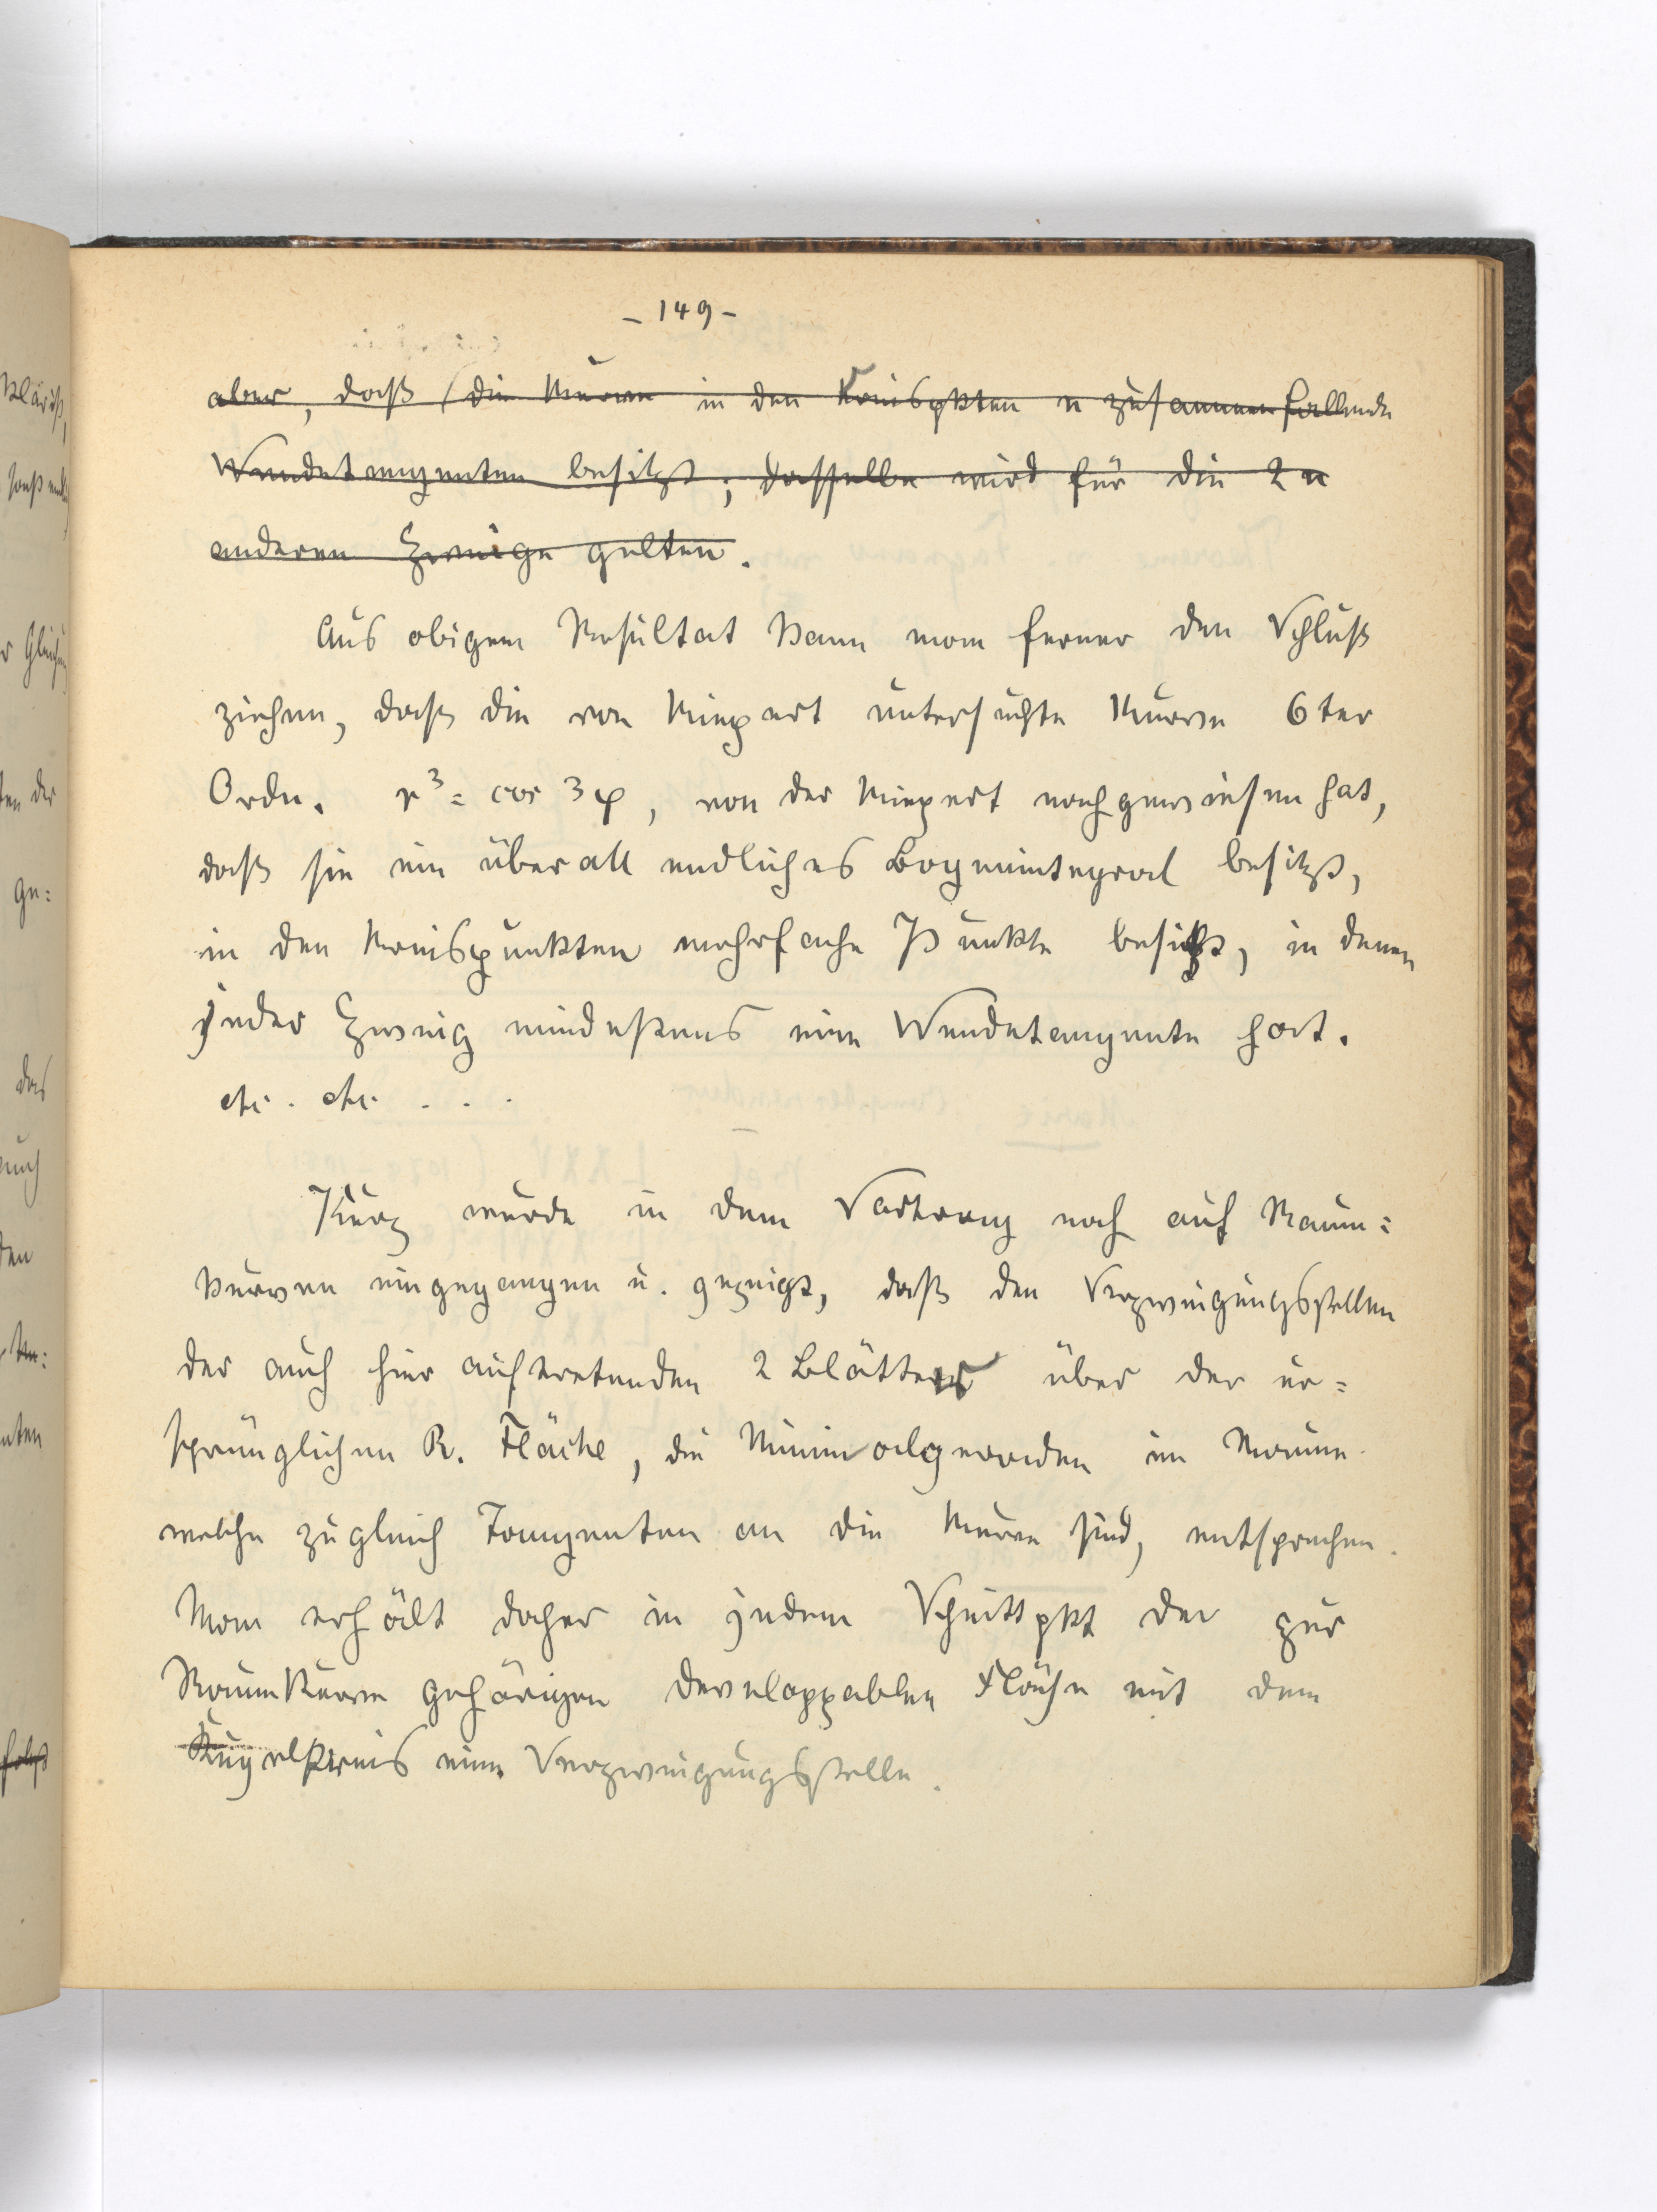 - 149 -
aber, daß (die Kurve in den Kreispkten n zusammenfallende
Wendetangenten besitzt; dasselbe wird für die 2n
anderen Zweige gelten.
Aus obigem Resultat kann man ferner den Schluß
ziehen, daß die von Kiepert untersuchte Kurve 6ter
Ordn. r³ = cos 3φ, von der Kiepert nachgewiesen hat,
daß sie ein überall endliches Bogenintegral besitzt,
in den Kreispunkten mehrfache Punkte besitzt, in denen
jeder Zweig mindestens eine Wendetangente hat.
etc. etc. . . .
Kurz wurde in dem Vortrag noch auf Raum=
kurven eingegangen u. gezeigt, daß den Verzweigungsstellen
der auch hier auftretenden 2 Blätter über der ur=
sprünglichen R. Fläche, die Minimalgeraden im Raume
welche zugleich Tangenten an die Kurve sind, entsprechen.
Man erhält daher in jedem Schnittpkt der zur
Raumkurve gehörigen developpablen Fläche mit dem
Kugelkreis eine Verzweigungsstelle.